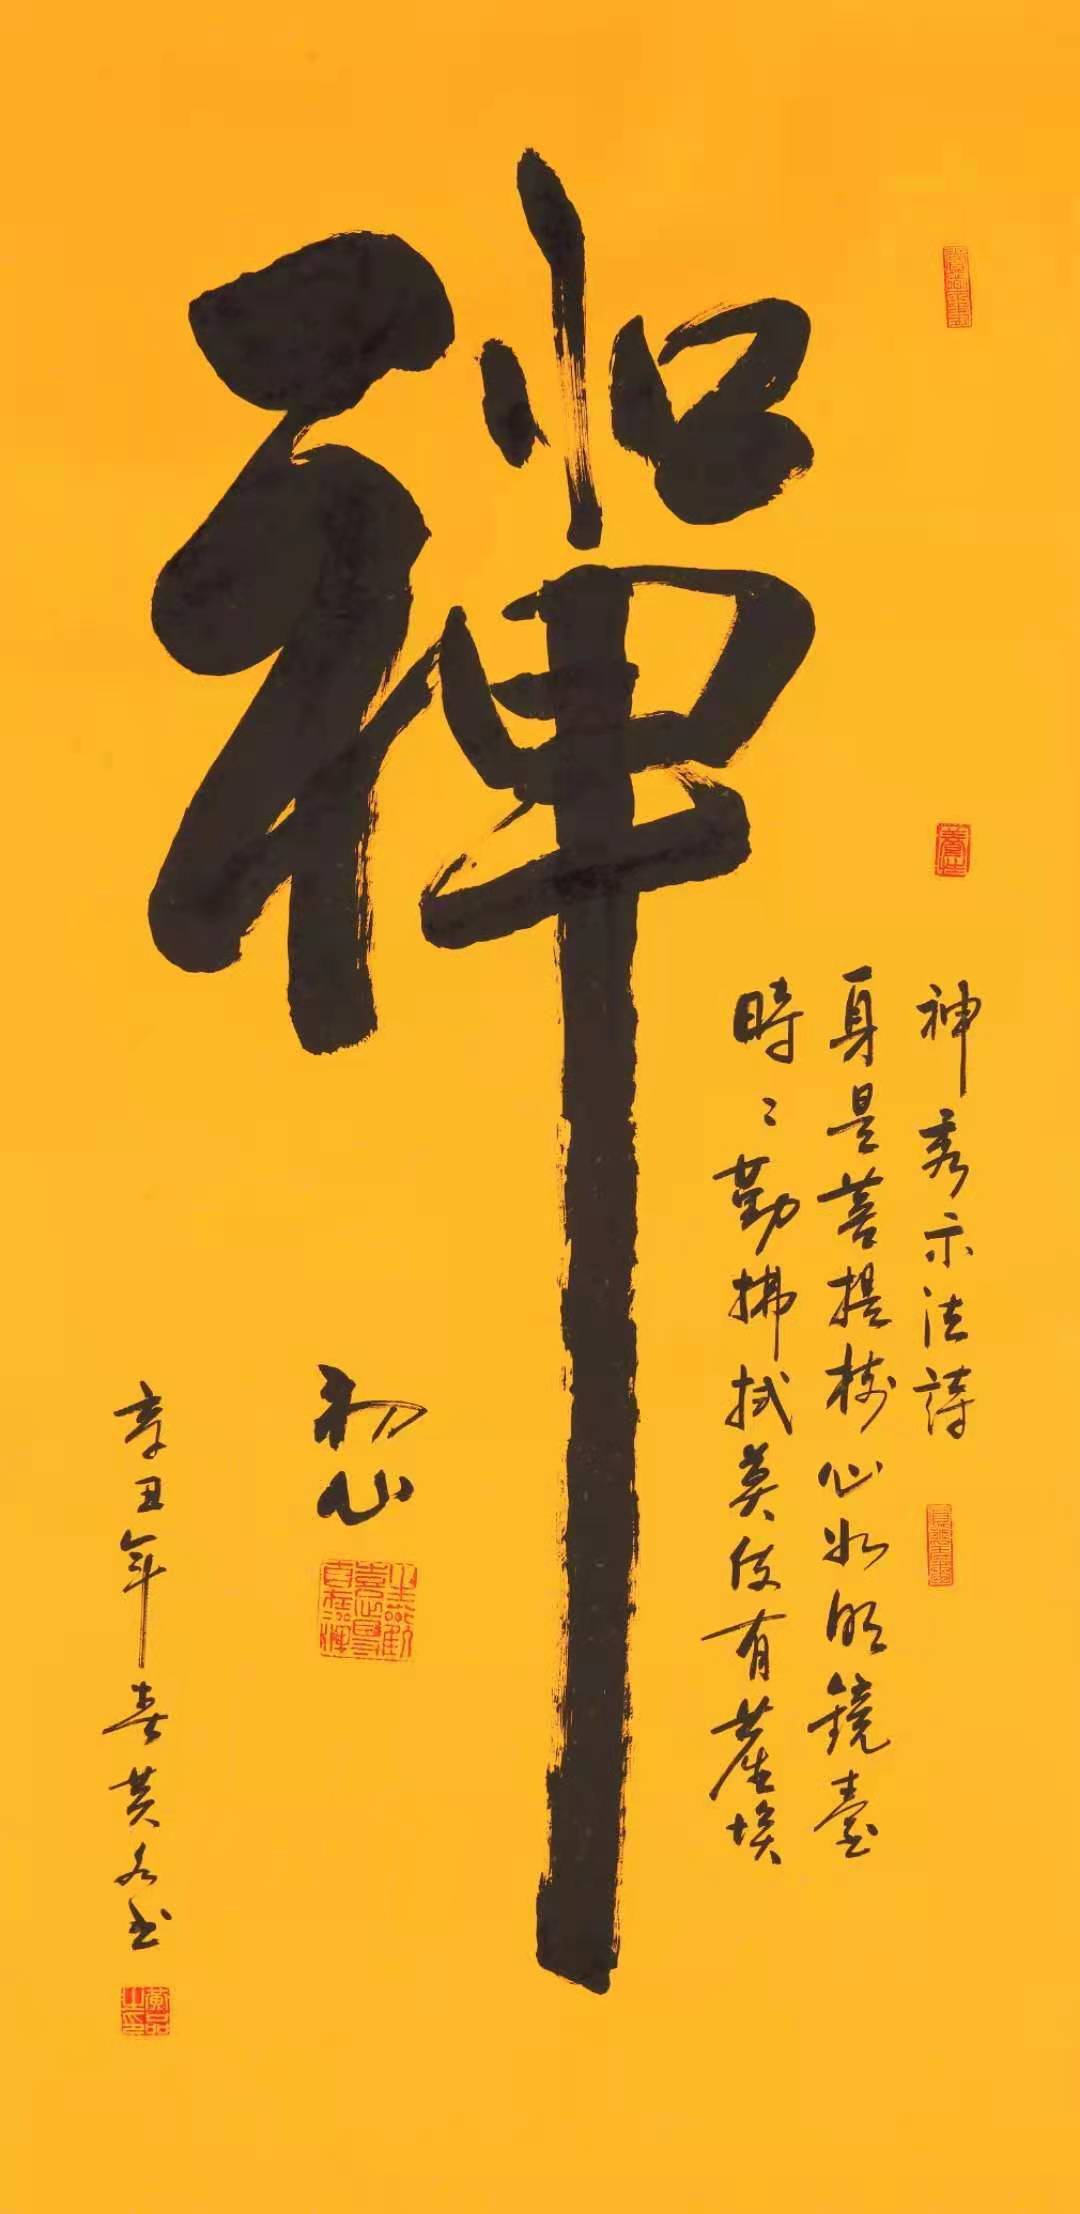 禪
神秀示法詩
身是菩提樹心如明鏡臺
時〻勤拂拭莫使有塵埃
初心
辛丑年春黄名书